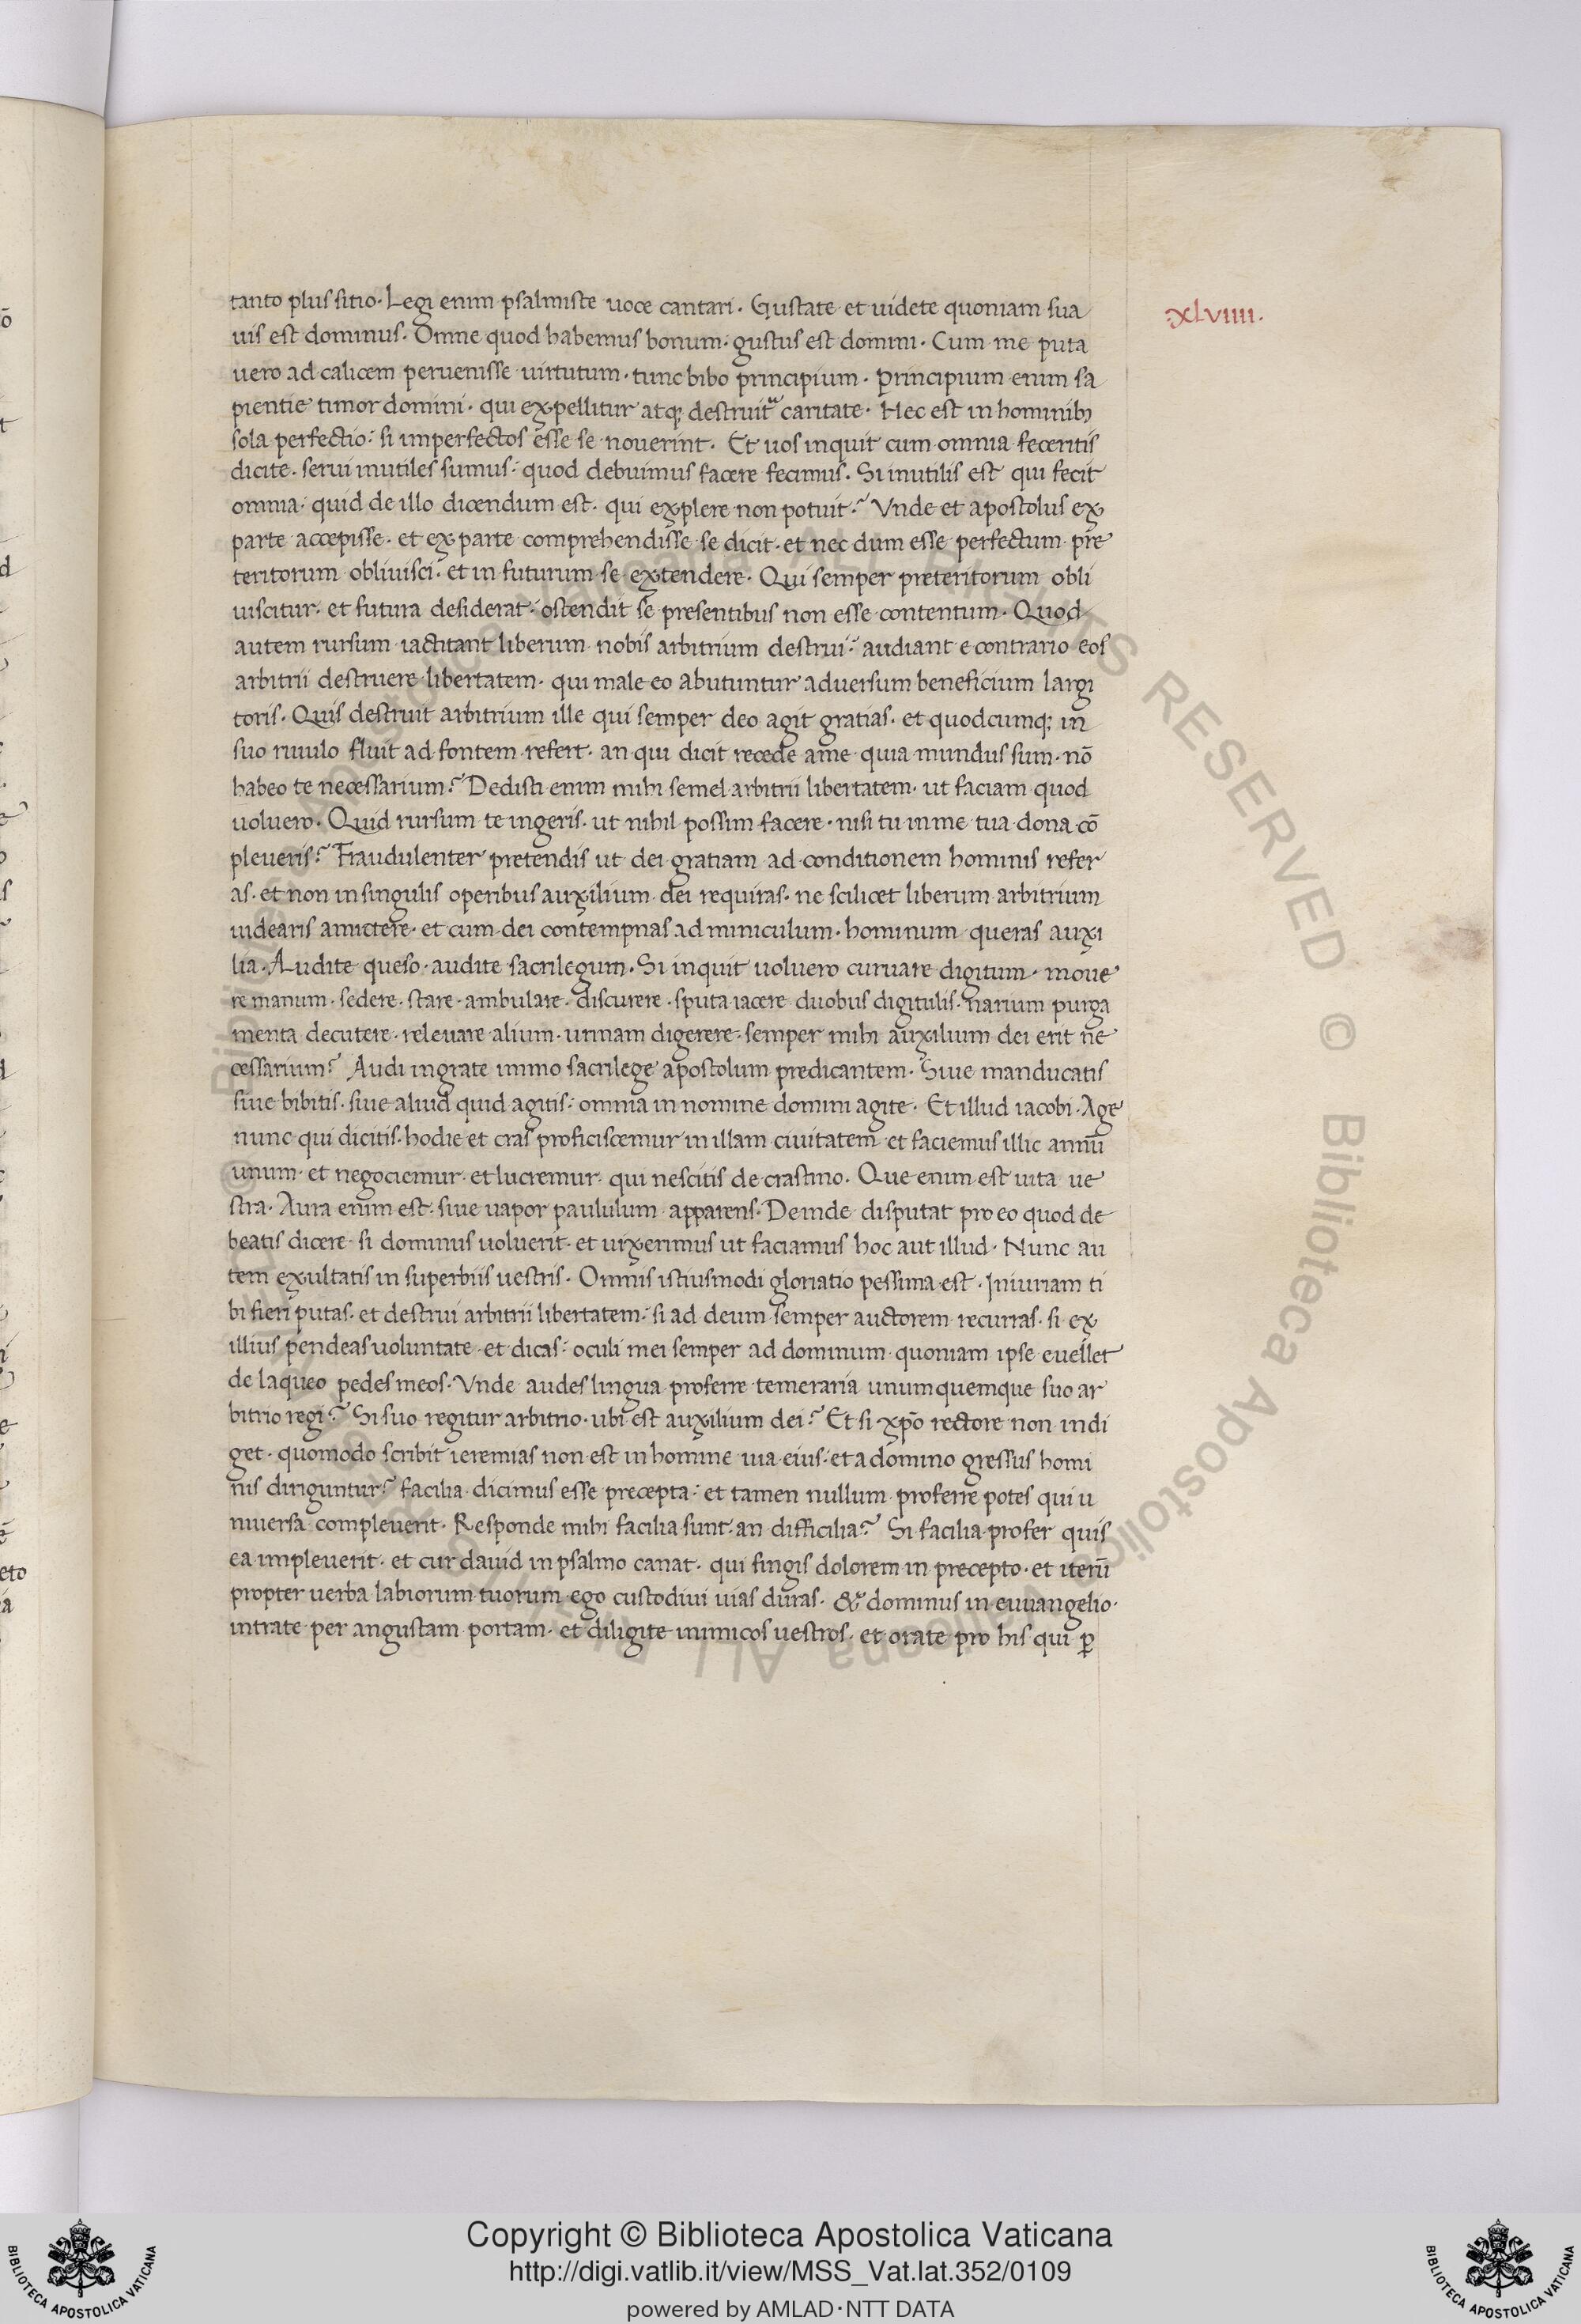 tanto plus sitio. Legi enim psalmiste uoce cantari. Gustate et uidete quoniam sua
.xlviiii.
uis est dominus. Omne quod habemus bonum. gustus est domini. Cum me puta
uero ad calicem peruenisse uirtutum. tunc bibo principium. Principium enim sa
pientie timor domini. qui expellitur atq; destruitur caritate. Hec est in hominib;
sola perfectio: si imperfectos esse se nouerint. Et uos inquit cum omnia feceritis
dicite. serui inutiles sumus: quod debuimus facere fecimus. Si inutilis est qui fecit
omnia. quid de illo dicendum est. qui explere non potuit? Vnde et apostolus ex
parte accepisse. et ex parte comprehendisse se dicit. et nec dum esse perfectum pre
teritorum obliuisci. et in futurum se extendere. Qui semper preteritorum obli
uiscitur. et futura desiderat: ostendit se presentibus non esse contentum. Quod
autem rursum iactitant liberum nobis arbitrium destrui: audiant e contrario eos
arbitrii destruere libertatem. qui male eo abutuntur aduersum beneficium largi
toris. Quis destruit arbitrium ille qui semper deo agit gratias. et quodcumq; in
suo riuulo fluit ad fontem refert. an qui dicit recede a me quia mundus sum. nō
habeo te necessarium? Dedisti enim mihi semel arbitrii libertatem. ut faciam quod
uoluero. Quid rursum te ingeris. ut nihil possim facere. nisi tu in me tua dona cō
pleueris? Fraudulenter pretendis ut dei gratiam ad conditionem hominis refer
as. et non in singulis operibus auxilium dei requiras. ne scilicet liberum arbitrium
uidearis amittere. et cum dei contempnas adminiculum. hominum queras auxi
lia. Audite queso. audite sacrilegum. Si inquit uoluero curuare digitum. moue
re manum. sedere. stare. ambulare. discurere. sputa iacere duobus digitulis. narium purga
menta decutere. releuare alium. urinam digerere. semper mihi auxilium dei erit ne
cessarium? Audi ingrate immo sacrilege apostolum predicantem. Siue manducatis
siue bibitis. siue aliud quid agitis: omnia in nomine domini agite. Et illud iacobi. Age
nunc qui dicitis. hodie et cras proficiscemur in illam ciuitatem et faciemus illic annū
unum. et negociemur. et lucremur. qui nescitis de crastino. Que enim est uita ue
stra. Aura enim est. siue uapor paululum apparens. Deinde disputat pro eo quod de
beatis dicere si dominus uoluerit. et uixerimus ut faciamus hoc aut illud. Nunc au
tem exultatis in superbiis uestris. Omnis istiusmodi gloriatio pessima est. Iniuriam ti
bi fieri putas. et destrui arbitrii libertatem: si ad deum semper auctorem recurras. si ex
illius pendeas uoluntate. et dicas: oculi mei semper ad dominum quoniam ipse euellet
de laqueo pedes meos. Vnde audes lingua proferre temeraria unumquemque suo ar
bitrio regi? Si suo regitur arbitrio. ubi est auxilium dei? Et si xpō rectore non indi
get. quomodo scribit ieremias non est in homine uia eius. et a domino gressus homi
nis diriguntur? facilia dicimus esse precepta: et tamen nullum proferre potes qui u
niuersa compleuerit. Responde mihi facilia sunt. an difficilia? Si facilia profer quis
ea impleuerit. et cur dauid in psalmo canat. qui fingis dolorem in precepto. et iterū
propter uerba labiorum tuorum ego custodiui uias duras. & dominus in euuangelio.
intrate per angustam portam. et diligite inimicos uestros. et orate pro his qui ꝑ
Copyright © Biblioteca Apostolica Vaticana
http://digi.vatlib.it/view/MSS_Vat.lat.352/0109
powered by AMLAD·NTT DATA